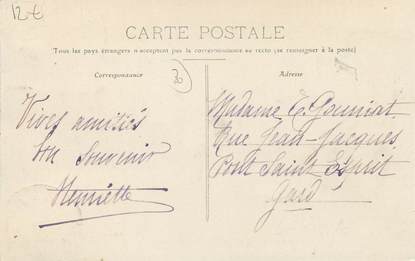 12€
CARTE POSTALE
Tous les pays étrangers n'acceptent pas la correspondance au recto (se renseigner à la poste)
Correspondance
30
Adresse
Vives amitiés
Un Souvenir
Henriette
Madame C. Gouniat
Rue Jean-Jacques
Pont Saint Esprit
Gard